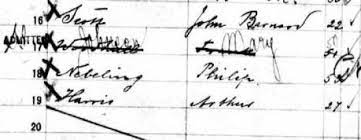 16 X Scott John Barnard 22
ADMITTED 17 X Mary 51
18 X Nebeling Philip
19 X Harris Arthur 27
20